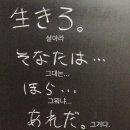 生きろ。
살아라
そなたは…
그대는…
ほら…
그뭐냐…
あれだ。
그거다.